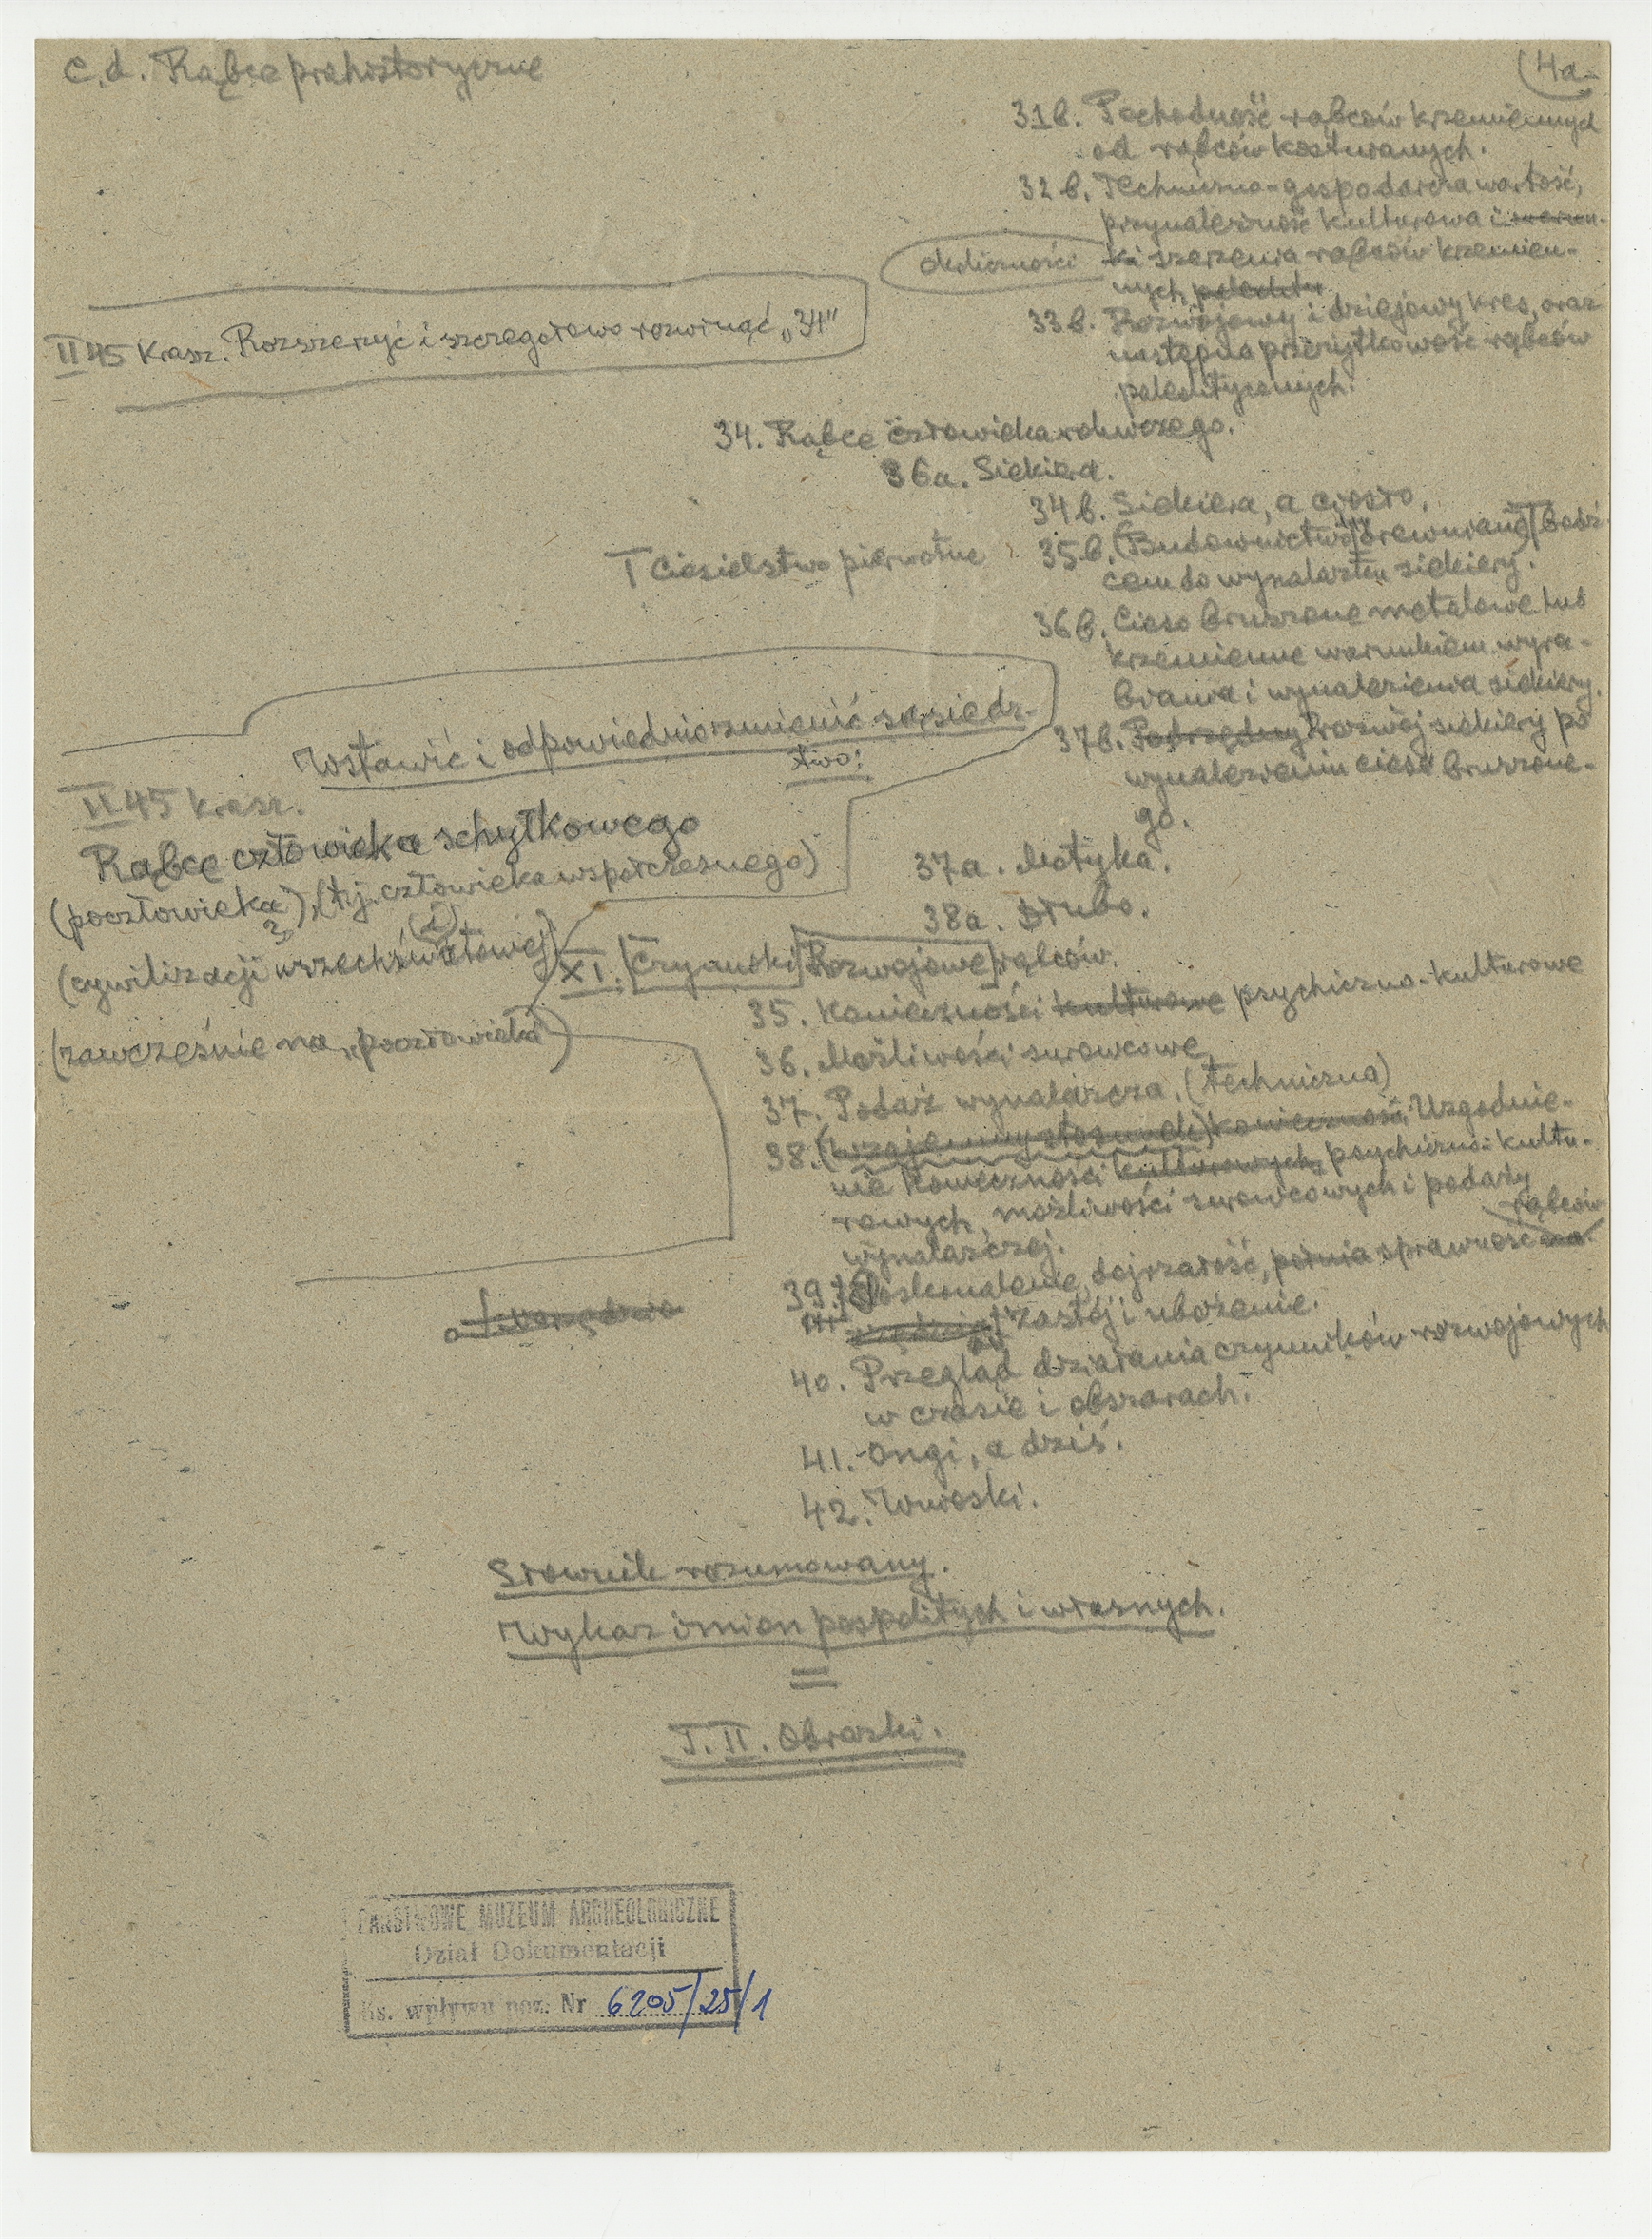 c.d. Rąbce prehistoryczne
(4a-
31b. Pochodność rąbców krzemiennych
od rąbców kosturanych.
32b. Techniczno-gospodarcza wartość,
przynależność kulturowa i warun-
okoliczności ki szerzenia rąbców krzemien-
nych
33b. Rozwojowy i dziejowy kres, oraz
następna przeżytkowość rąbców
paleolitycznych.
II 45 Krasz. Rozszerzyć i szczegółowo rozwinąć „34"
34. Rąbce człowieka rolniczego.
36a. Siekiera.
34b. Siekiera, a ciosło.
T Ciesielstwo pierwotne
35b. (Budownictwo drewniane) bodź-
cem do wynalazku siekiery.
36b. Cioso bruszone metalowe lub
krzemienne warunkiem wyra-
biania i wynalezienia siekiery.
37b. Podrzędny Rozwój siekiery po
wynalezieniu ciosa bruszone-
go.
Wstawić i odpowiednio zmienić sąsiedz-
two:
II 45 Krasz.
Rąbce człowieka schyłkowego
(poczłowieka), (tj. człowieka współczesnego)
(cywilizacji wszechświatowej)
(zawcześnie na „poczłowieka")
37a. Motyka.
38a. Dłubo.
XI. Czynniki Rozwojowe rąbców.
35. Konieczności kulturowe psychiczno-kulturowe
36. Możliwości surowcowe.
37. Podaż wynalazcza. (techniczna)
38. (Wzajemny stosunek) konieczności Uzgodnie-
nie konieczności kulturowych, psychiczno-kultu-
rowych, możliwości surowcowych i podaży
wynalazczej.
39. Doskonalenie, dojrzałość, pełnia sprawność rąbców
zastój i ubożenie.
40. Przegląd działania czynników rozwojowych
w czasie i obszarach.
41. Ongi, a dziś.
42. Wnioski.
Słownik rozumowany.
Wykaz imion pospolitych i własnych.
=
T. II. Obrazki.
PAŃSTWOWE MUZEUM ARCHEOLOGICZNE
Dział Dokumentacji
Ks. wpływu poz. Nr 6205/25/1